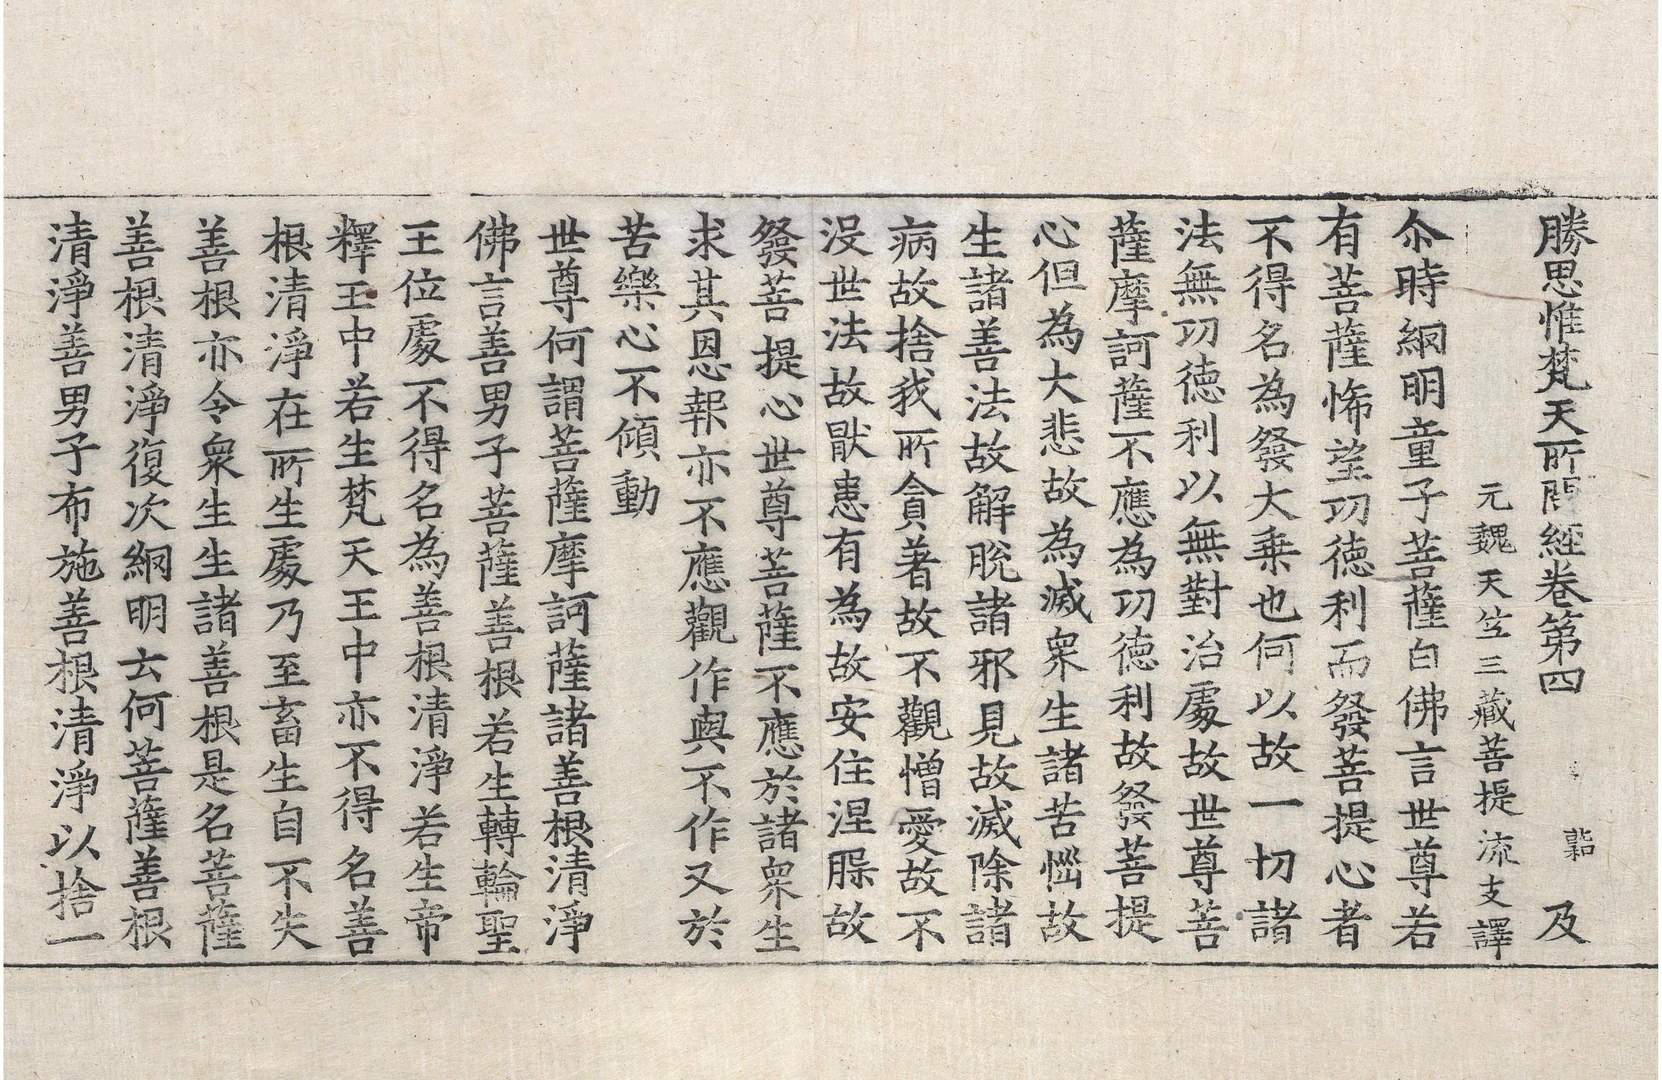 勝思惟梵天所問經卷第四　及
元魏天竺三藏菩提流支譯
尒時網明童子菩薩白佛言世尊若
有菩薩悕望功德利而發菩提心者
不得名為發大乗也何以故一切諸
法無功德利以無對治處故世尊菩
薩摩訶薩不應為功德利故發菩提
心但為大悲故為滅衆生諸苦惱故
生諸善法故解脫諸邪見故滅除諸
病故捨我所貪著故不觀憎愛故不
没世法故猒患有為故安住涅槃故
發菩提心世尊菩薩不應於諸衆生
求其恩報亦不應觀作與不作又於
苦樂心不傾動
世尊何謂菩薩摩訶薩諸善根清淨
佛言善男子菩薩善根若生轉輪聖
王位處不得名為善根清淨若生帝
釋王中若生梵天王中亦不得名善
根清淨在所生處乃至畜生自不失
善根亦令衆生生諸善根是名菩薩
善根清淨復次網明云何菩薩善根
清淨善男子布施善根清淨以捨一